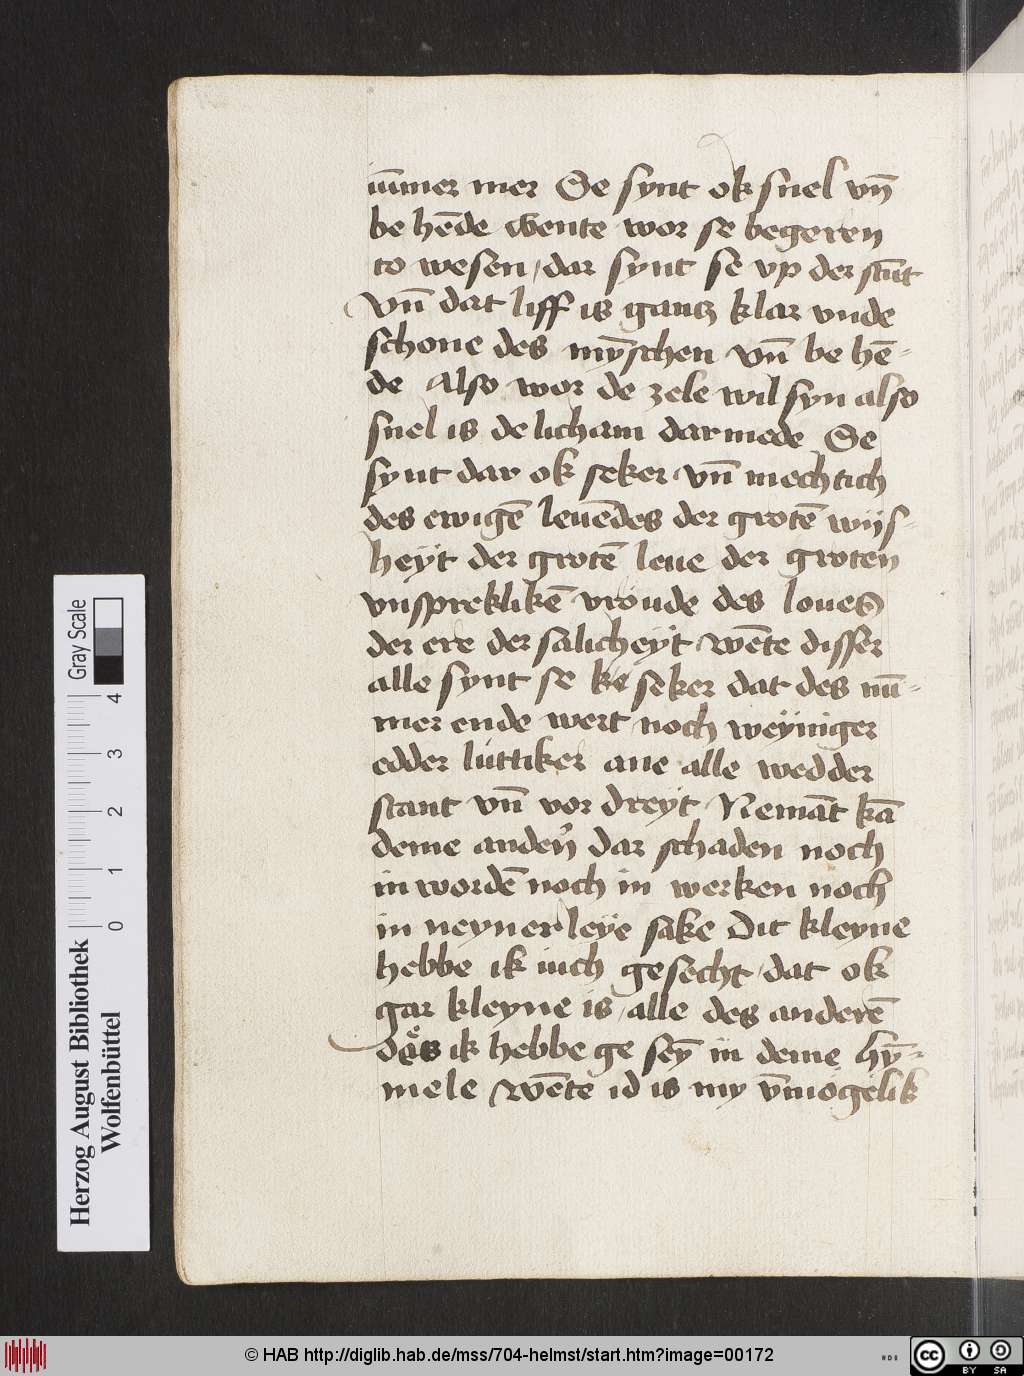 im̄mer mer Se synt ok snel vn̄
be hēde wente wor se begeren
to wesen / dar synt se vp der stūt
Vn̄ dat liff is gantz klar vnde
schone des mȳschen vn̄ be hē-
de Also wor de zele wil syn also
snel is de licham dar mede Se
synt dar ok seker vn̄ mechtich
des ewigē leuēdes der grotē wijs-
heÿt der grotē leue der groten
vnspreklikē vroude des loues
der ere der salicheÿt wēte disser
alle synt se seker dat des nū-
mer ende wert noch weÿniger
edder luttiker ane alle wedder
stant vn̄ vor dreÿt Nemāt kā
deme anderē dar schaden noch
in wordē noch in werken noch
in neyner leÿe sake Dit kleyne
hebbe ik iuch gesecht / dat ok
gar kleyne is / alle des anderē
des ik hebbe ge seȳ in deme hȳ-
mele Wēte id is my v̄mogelik
Gray Scale
0 1 2 3 4
Herzog August Bibliothek
Wolfenbüttel
© HAB http://diglib.hab.de/mss/704-helmst/start.htm?image=00172
cc BY SA